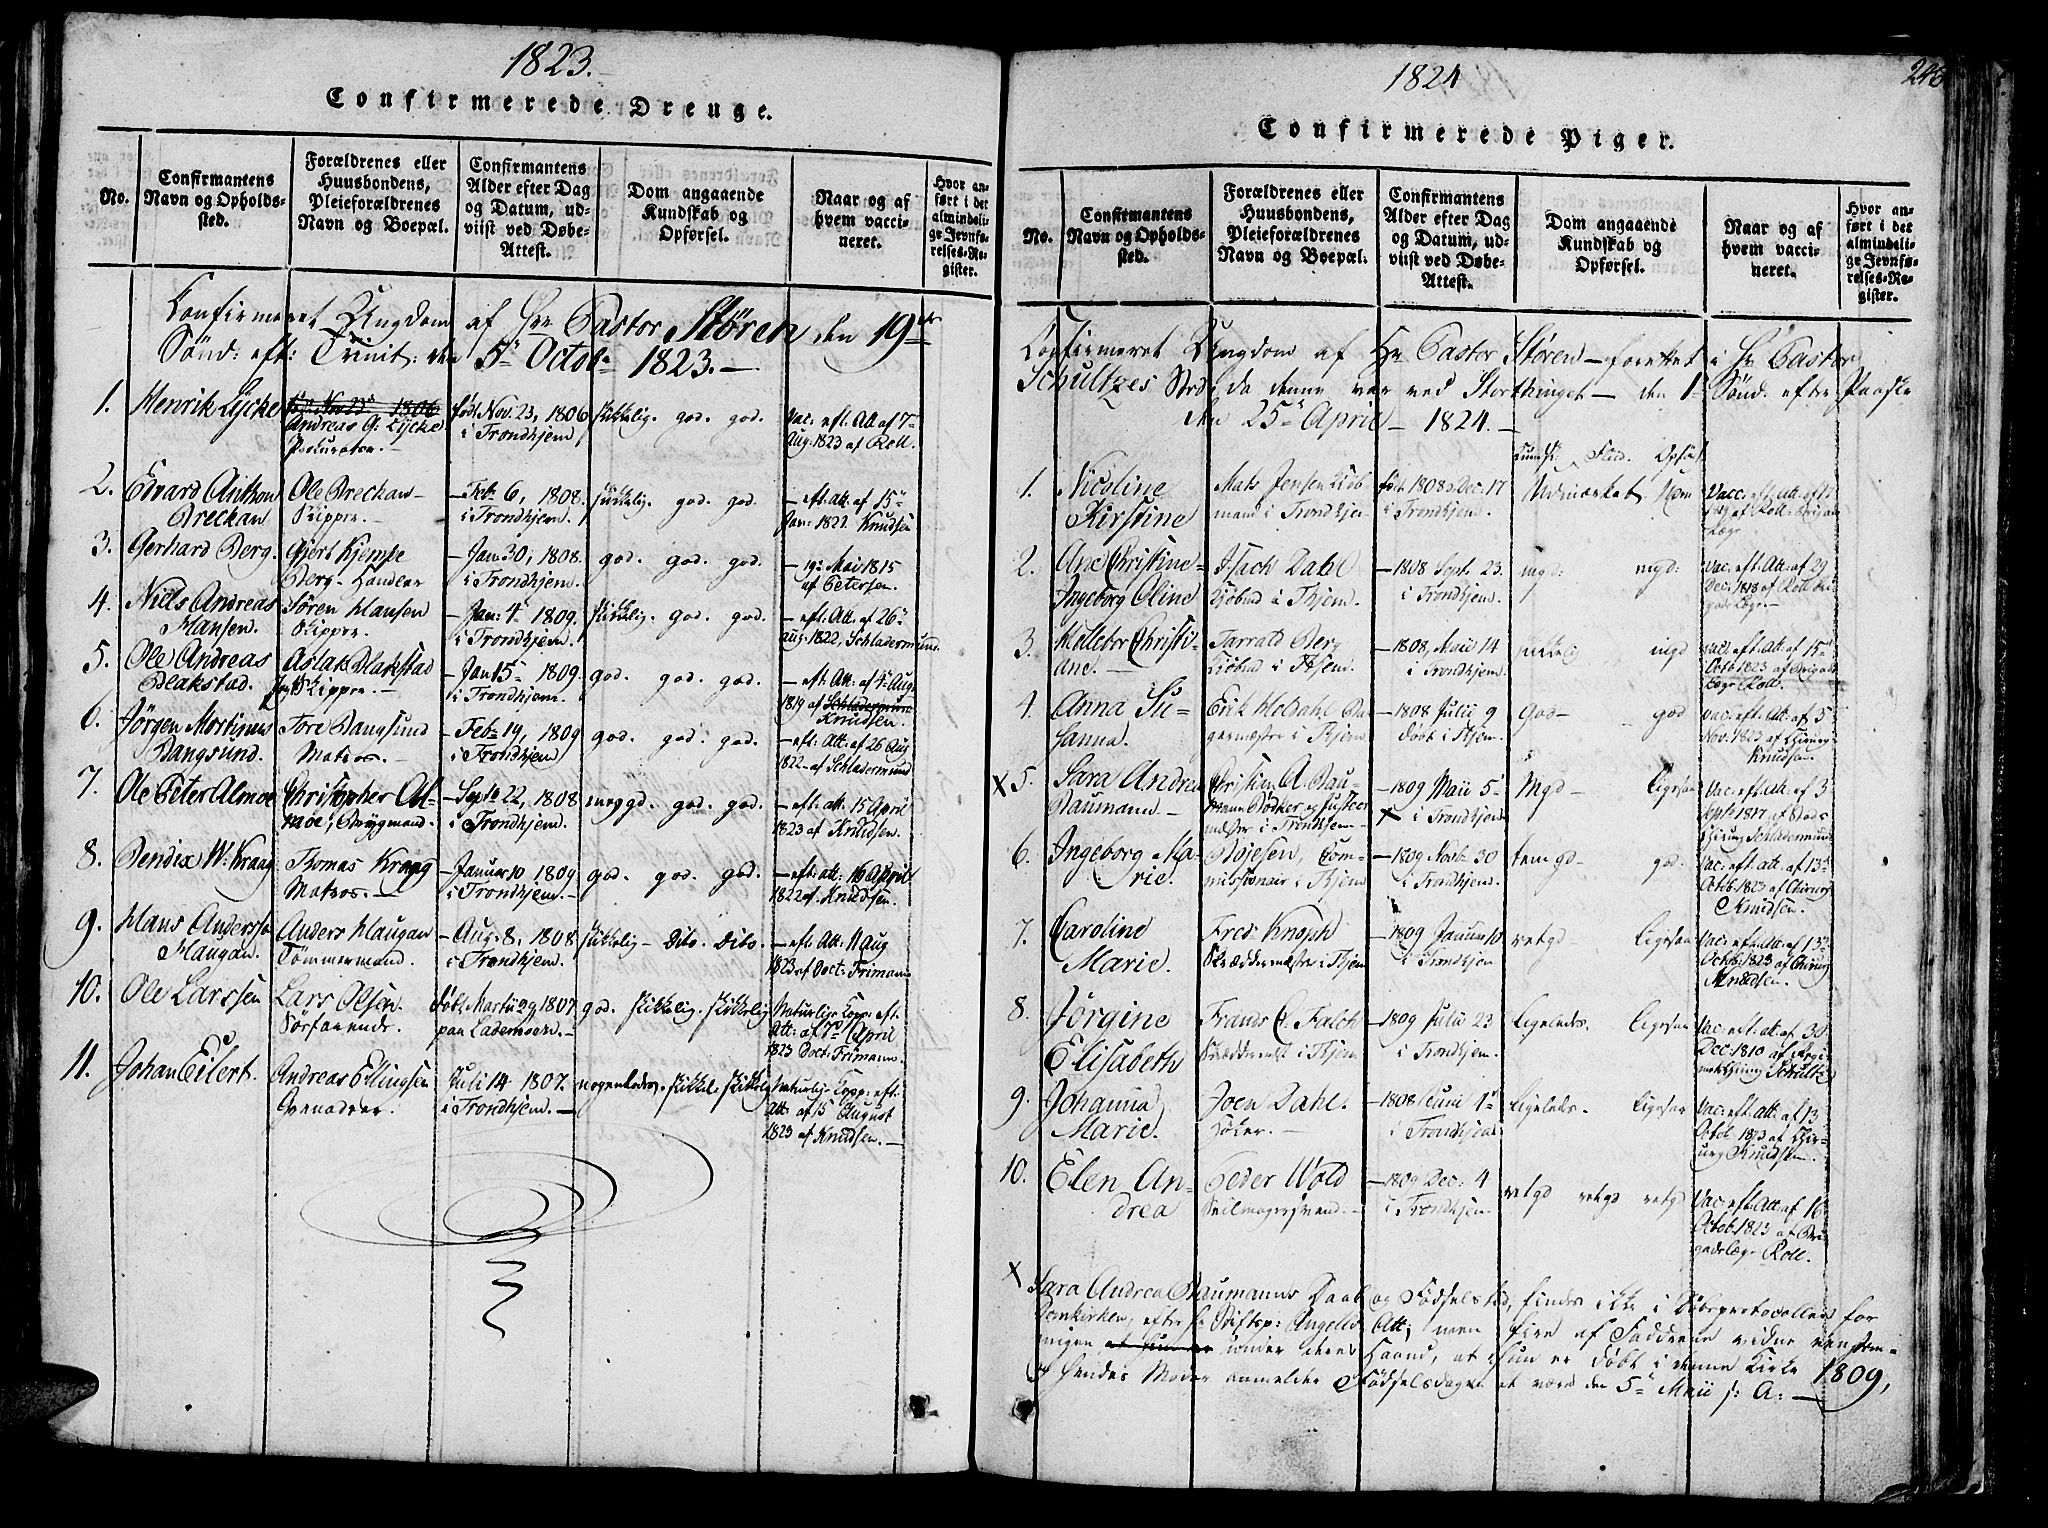 1823.
Confirmerede Drenge.
No.
Confirmantens Navn og Opholds-sted.
Forældrenes eller Huusbondens, Pleieforældrenes Navn og Boepæl.
Confirmantens Alder efter Dag og Datum, ud-viist ved Døbe-Attest.
Dom angaaende Kundskab og Opførsel.
Naar og af hvem vacci-neret.
Hvor an-ført i det almindeli-ge Jevnfø-relses-Re-gister.
Confirmeret Ungdom af Hr Pastor Støren den 19de
Sønd: eft: Trinit: den 5te Octobr 1823.
1. Henrik Lycke
Andreas G. Lycke Procurator.
født Nov. 23, 1806 i Trondhjem
skikkelig. god. god.
Vac: eft. Att af 7de Aug: 1823 af Roll.
2. Edvard Anthon Brechan
Ole Brechan Skipper.
Feb: 6, 1808. i Trondhjem.
skikkelig. god. god.
eft: Att: af 15de Jan: 1822. Knudsen
3. Gerhard Berg.
Gjert Kjempe Berg Handler
Jan: 30, 1808. i Trondhjem.
god. god. god.
19de Mai 1815 af Petersen.
4. Niels Andreas Hansen.
Søren Hansen Skipper.
Jan: 4de 1809. i Trondhjem.
skikkelig. god. god.
eft: Att: af 26de Aug: 1822, Schladermund.
5. Ole Andreas Blakstad.
Aslak Blakstad Skipper.
Jan 15de 1809. i Trondhjem.
god. god. god.
eft: Att: af 4de Aug: 1819 af Knudsen.
6. Jörgen Mortinus Bangsund.
Tore Bangsund Matros.
Feb: 19, 1809 i Trondhjem
god. god. god.
eft: Att: af 26 Aug 1822 af Schladermund
7. Ole Peter Almoe
Christopher Almoe, Brygmand.
Septr 22, 1808 i Trondhjem.
megd. god. god.
eft: att: 15 April 1823 af Knudsen.
8. Bendix W. Kraag
Thomas Kraag Matros.
Januar 10 1809 i Trondhjem.
god. god. god.
eft: att: 16 April 1822 af Knudsen.
9. Hans Anderssen Haugan.
Anders Haugan Tømmermand.
Aug: 8, 1808 i Trondhjem.
skikkelig Dito. Dito.
eft: Att: 11 Aug 1823 af Doct: Frimann
10. Ole Larssen
Lars Olsen Sørfarende.
Døbt Martii 29, 1807 paa Lademoen.
god. skikkelig. skikkelig
Naturlige Kopp: eft. Att: af 7de April 1823 Doct: Frimann.
11. Johan Eilert.
Andreas Ellingsen
Juli 14 1807. i Trondhjem.
nogenledes. skikkel. skikkelig
Naturlige Kopp: eft. Att: af 5 August 1823 af Knudsen.
1824
Confirmerede Piger.
No.
Confirmantens Navn og Opholds-sted.
Forældrenes eller Huusbondens, Pleieforældrenes Navn og Boepæl.
Confirmantens Alder efter Dag og Datum, ud-viist ved Døbe-Attest.
Dom angaaende Kundskab og Opførsel.
Naar og af hvem vacci-neret.
Hvor an-ført i det almindeli-ge Jevnfø-relses-Re-gister.
Confirmeret Ungdom af Hr Pastor Støren forrettet i Hr Pastor
Schultzes Sted, da denne var ved Storthinget den 1ste Sønd: efter Paaske
den 25de April 1824.
Kundsk. Flid. Opførs.
1. Nicoline Kirstine
Mats Jensen i Trondhjem
født 1808 Dec. 17 i Trondhjem.
Udmærket
2. Ane Christine Ingeborg Oline
Isach Dahl i Thjem.
1808 Sept. 23. i Trondhjem.
mgd: mgd:
Vac: eft. Att: af 29 Dec: 1818 af Roll Brigadelæge.
3. Mellebor Christiane.
Tarrald Berg i Thjem.
1808, Maii 14 i Trondhjem
mgd
Vac: eft. Att: af 15de Octb 1823 af Brigadelæge Roll.
4. Anna Susanna.
Erik Meldahl i Thjem
1808 Julii 9 Døbt i Thjem.
God god
Vac: eft. Att: af 5 Nov. 1823 af Chirurg Knudsen.
x 5. Sara Andrea Baumann
Christian A. Baumann Bødker og Justeermester i Trondhjem
1809 Maii 5te x i Trondhjem
Mgd ligesaa
Vac: eft: Att: af 3 Septr 1817 af Chirurg Schladermund
6. Ingeborg Marie.
Bøjesen, Commissionair i Thjem
1809 Novbr 30 i Trondhjem.
temgd god.
Vac: eft: att: af 13de Octob 1823 af Chirurg Knudsen.
7. Caroline Marie.
Fred: Knoph Skræddermester i Thjem
1809 Januar 10 i Trondhjem
retgd ligesaa
Vac: eft: Att: af 13de Octob: 1823 af Chirurg Knudsen.
8. Jörgine Elisabeth
Frands C. Falch i Thjem
1809 Julii 23 i Trondhjem.
ligeledes. ligesaa
Vac: eft: att: af 30 Dec: 1810 af Schultz
9. Johanna Marie.
Joen Dahl.
1808 Juni 1ste i Trondhjem
ligeledes. ligesaa
Vac: eft: Att: af 13 Octob 1823 af Chirurg Knudsen.
10. Elen Andrea
Peder Wold Seilmagersvend.
1809 Dec: 4 i Trondhjem
retgd retgd retgd
Vac: eft: Att: af 16 Octob: 1823 af Brigadelæge Roll.
x Sara Andrea Baumanns Daab og Fødselstid, findes ikke i Døbeprotocollen for
Domkirken, efter Stiftsp: Angells Att; men fire af Fadderne vidne
under deres Haand, at Hun er Døbt i denne Kirke 1809,
og Hendes Moder anmelder Fødselsdagen at være den 5te Maii s: A: